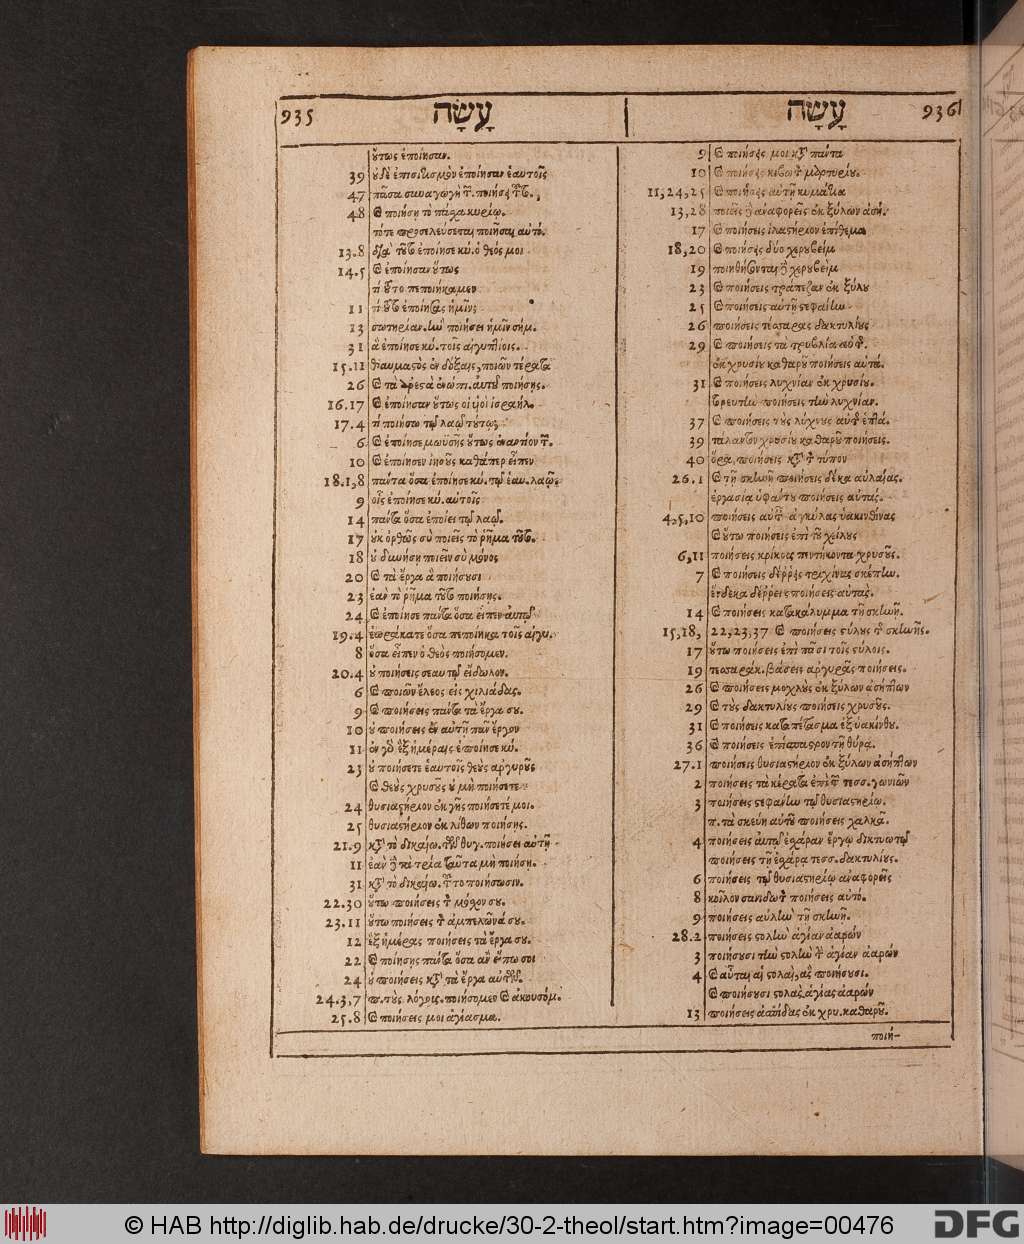 935 עָשָׂה
οὕτως ἐποίησαν.
39 οὐδὲ ἐπισιτισμὸν ἐποίησαν ἑαυτοῖς
47 πᾶσα συναγωγὴ
48 καὶ ποιήσῃ τὸ πάσχα κυρίῳ.
τότε προσελεύσεται ποιῆσαι αὐτό.
13.8 διὰ τοῦτο ἐποίησε κύ. ὁ θεός μοι
14.5 καὶ ἐποίησαν οὕτως
τί τοῦτο πεποιήκαμεν
11 τί τοῦτο ἐποίησας ἡμῖν;
13 σωτηρίαν. ἣν ποιήσει ἡμῖν σήμ.
31 ἃ ἐποίησε κύ. τοῖς αἰγυπτίοις.
15.11 θαυμαστὸς ἐν δόξαις, ποιῶν τέρατα
26 καὶ τὰ ἀρεστὰ ἐνώπι. αὐτοῦ ποιήσῃς.
16.17 καὶ ἐποίησαν οὕτως οἱ υἱοὶ ἰσραήλ.
17.4 τί ποιήσω τῷ λαῷ τούτῳ;
6 καὶ ἐποίησε μωϋσῆς οὕτως ἐναντίον τ.
10 καὶ ἐποίησεν ἰησοῦς καθάπερ εἶπεν
18.1,8 πάντα ὅσα ἐποίησε κύ. τῷ ἑαυ. λαῷ.
9 οἷς ἐποίησε κύ. αὐτοῖς
14 πάντα ὅσα ἐποίει τῷ λαῷ.
17 οὐκ ὀρθῶς σὺ ποιεῖς τὸ ῥῆμα τοῦτο.
18 οὐ δυνήσῃ ποιεῖν σὺ μόνος
20 καὶ τὰ ἔργα ἃ ποιήσουσι
23 ἐὰν τὸ ῥῆμα τοῦτο ποιήσῃς.
24 καὶ ἐποίησε πάντα ὅσα εἶπεν αὐτῷ
19.4 ἑωράκατε ὅσα πεποίηκα τοῖς αἰγυ.
8 ὅσα εἶπεν ὁ θεὸς ποιήσομεν.
20.4 οὐ ποιήσεις σεαυτῷ εἴδωλον.
6 καὶ ποιῶν ἔλεος εἰς χιλιάδας.
9 καὶ ποιήσεις πάντα τὰ ἔργα σου.
10 οὐ ποιήσεις ἐν αὐτῇ πᾶν ἔργον
11 ἐν γὸ ἓξ ἡμέραις ἐποίησε κύ.
23 οὐ ποιήσετε ἑαυτοῖς θεοὺς ἀργυροῦς
καὶ θεοὺς χρυσοῦς οὐ μὴ ποιήσετε
24 θυσιαστήριον ἐκ γῆς ποιήσετέ μοι.
25 θυσιαστήριον ἐκ λίθων ποιήσῃς.
21.9 κατὰ τὸ δικαίω. τῶν θυγ. ποιήσει αὐτῇ
11 ἐὰν δὲ τὰ τρία ταῦτα μὴ ποιήσῃ.
31 κατὰ τὸ δικαίω. τοῦτο ποιήσωσιν.
22.30 οὕτω ποιήσεις τὸν μόσχον σου.
23.11 οὕτω ποιήσεις τὸν ἀμπελῶνά σου.
12 ἓξ ἡμέρας ποιήσεις τὰ ἔργα σου.
22 καὶ ποιήσῃς πάντα ὅσα ἂν εἴπω σοι
24 οὐ ποιήσεις κατὰ τὰ ἔργα αὐτῶν.
24.3,7 π. τοὺς λόγοις. ποιήσομεν καὶ ἀκουσόμ.
25.8 καὶ ποιήσεις μοι ἁγίασμα.
עָשָׂה 936
9 καὶ ποιήσεις μοι κατὰ πάντα
10 καὶ ποιήσεις κιβωτὸν μαρτυρίου.
11,24,25 καὶ ποιήσεις αὐτῇ κυμάτια
13,28 ποιήσεις δὲ ἀναφορεῖς ἐκ ξύλων ἀσή.
17 καὶ ποιήσεις ἱλαστήριον ἐπίθεμα
18,20 καὶ ποιήσεις δύο χερουβείμ
19 ποιηθήσονται δὲ χερουβείμ
23 καὶ ποιήσεις τράπεζαν ἐκ ξύλου
25 καὶ ποιήσεις αὐτῇ στεφάνην
26 ποιήσεις τέσσαρας δακτυλίους
29 καὶ ποιήσεις τὰ τρυβλία αὐτ.
ἐκ χρυσίου καθαροῦ ποιήσεις αὐτά.
31 καὶ ποιήσεις λυχνίαν ἐκ χρυσίου.
τορευτὴν ποιήσεις τὴν λυχνίαν.
37 καὶ ποιήσεις τοὺς λύχνους αὐτ ἑπτά.
39 τάλαντον χρυσίου καθαροῦ ποιήσεις.
40 ὅρα, ποιήσεις κατὰ τὸν τύπον
26.1 καὶ τῇ σκηνῇ ποιήσεις δέκα αὐλαίας.
ἐργασία ὑφάντου ποιήσεις αὐτάς.
4,5,10 ποιήσεις αὐτ ἀγκύλας ὑακινθίνας
καὶ οὕτω ποιήσεις ἐπὶ τοῦ χείλους
6,11 ποιήσεις κρίκους πεντήκοντα χρυσοῦς.
7 καὶ ποιήσεις δέρρεις τριχίνας σκέπην.
ἕνδεκα δέρρεις ποιήσεις αὐτάς.
14 καὶ ποιήσεις κατακάλυμμα τῇ σκηνῇ.
15,18, 22,23,37 καὶ ποιήσεις στύλους τῇ σκηνῆς.
17 οὕτω ποιήσεις ἐπὶ πᾶσι τοῖς στύλοις.
19 τεσσαράκ. βάσεις ἀργυρᾶς ποιήσεις.
26 καὶ ποιήσεις μοχλοὺς ἐκ ξύλων ἀσήπτων
29 καὶ τοὺς δακτυλίους ποιήσεις χρυσοῦς.
31 καὶ ποιήσεις καταπέτασμα ἐξ ὑακίνθου.
36 καὶ ποιήσεις ἐπίσπαστρον τῇ θύρᾳ.
27.1 ποιήσεις θυσιαστήριον ἐκ ξύλων ἀσήπτων
2 ποιήσεις τὰ κέρατα ἐπὶ τ τεσσ. γωνιῶν
3 ποιήσεις στεφάνην τῷ θυσιαστηρίῳ.
π. τὰ σκεύη αὐτοῦ ποιήσεις χαλκᾶ.
4 ποιήσεις αὐτῷ ἐσχάραν ἔργῳ δικτυωτῷ
ποιήσεις τῇ ἐσχάρᾳ τεσσ. δακτυλίους.
6 ποιήσεις τῷ θυσιαστηρίῳ ἀναφορεῖς
8 κοῖλον σανιδωτὸν ποιήσεις αὐτό.
9 ποιήσεις αὐλὴν τῇ σκηνῇ.
28.2 ποιήσεις στολὴν ἁγίαν ἀαρών
3 ποιήσουσι τὴν στολὴν τὴν ἁγίαν ἀαρών
4 καὶ αὗται αἱ στολαί, ἃς ποιήσουσι.
καὶ ποιήσουσι στολὰς ἁγίας ἀαρών
13 ποιήσεις ἀσπίδας ἐκ χρυ. καθαροῦ.
ποιή-
© HAB http://diglib.hab.de/drucke/30-2-theol/start.htm?image=00476
DFG